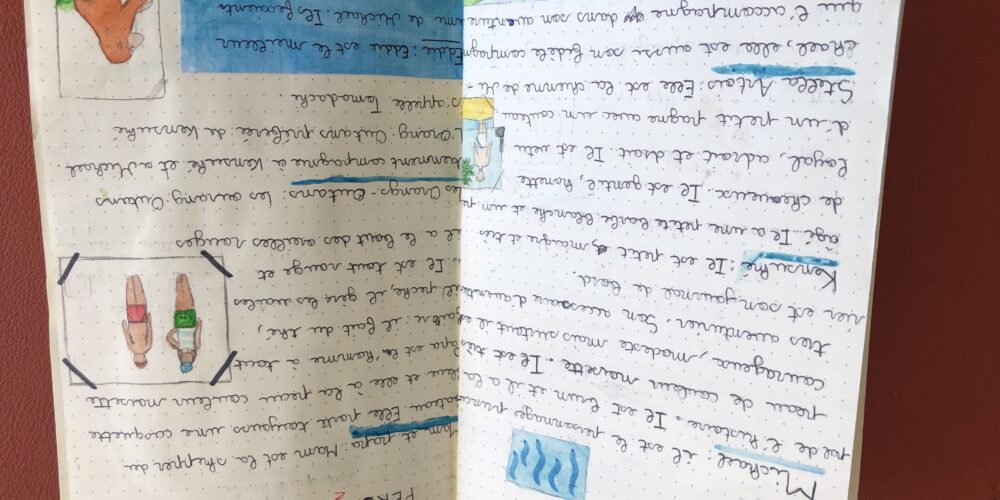 Michael : il est le personnage princi
pal de l'histoire. Il est brun et il a la
peau de couleur noisette. Il est très
courageux, modeste mais surtout il est
très aventurier. Son accessoire d'aventu
rier est son journal de bord.
Kensuké : Il est petit, maigre et très
âgé. Il a une petite barbe blanche et un peu
de cheveux. Il est gentil, honnête
loyal, adroit et droit. Il est vêtu
d'un petit pagne avec un couteau
Stella Artois : Elle est la chienne de Mi-
chael, elle est aussi son fidèle compagn
qui l'accompagne dans son aventure
Mam et papa : Mam est la skipper du
bateau. Elle porte toujours une casquette
bleue et elle à la peau couleur noisette
Papa est le homme à tout
faire : il fait du thé,
il pêche, il gère les voiles
Il est tout rouge et
il a le bout des oreilles rouges
Les Orangs-Outans : les orangs Outans
tiennent compagnie à Kensuké et a Michael.
L'Orang-Outans préférée de Kensuké
s'appelle Tomodachi
Eddie : Eddie est le meilleur
ami de Michael. Ils